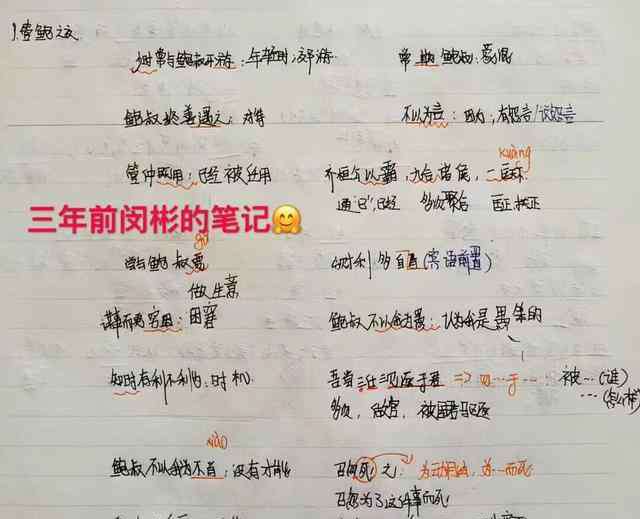 1.管鲍之交
少时常与鲍叔牙游：年轻时；郊游
常期鲍叔：蒙混
鲍叔终善遇之：对待
不以为言：因为；有怨言/说怨言
管仲既用：已经 被任用
齐桓公以霸，九合诸侯，一匡
kuàng
通"已"，已经 多次聚合 匡正 扶正
三年前闵彬的笔记🤗
gǔ
尝与鲍叔贾
做生意
分财利多自与(宾语前置)
谋事而更穷困：困窘
鲍叔不以我为愚：认为我是愚笨的
知时有利不利也：时机
吾尝三仕三见逐于君 => 见…于… 被…(逐)
多次，做官，被国君驱逐
xiào
鲍叔不以我为不肖：没有才能
召忽死之：为动用法，为…而死
召忽为了这件事而死